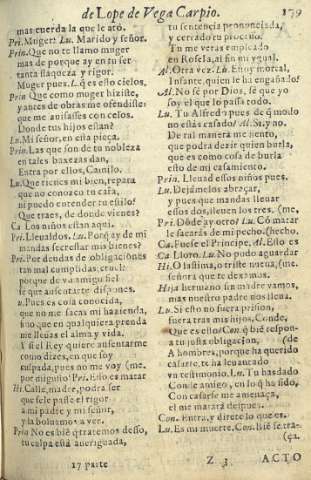 de Lope de Vega Carpio. 179
mas cuerda la que le ató.
Pri. Muger? Lu. Marido y señor.
Prin. Que no te llamo muger
mas de porque ay en tu ser
tanta flaqueza y rigor.
Muger pues. Lu. q̃ es esto cielos.
Prin Que como muger hiziste,
y antes de obras me ofendiste
que me auisasses con celos.
Donde tus hijos están?
Lu. Mi señor, en esta pieça.
Prin. Las que son de tu nobleza
en tales baxezas dan,
Entra por ellos, Camilo.
Lu. Que tienes mi bien, repara
que no conozco tu cara,
ni puedo entender tu estilo?
Que traes, de donde vienes?
Ca Los niños estan aqui.
Pri. Lleualdos. Lu. Porq̃ ay de mi
mandas secrestar mis bienes?
Pri. Por deudas de obligaciones
tan mal cumplidas, cruel,
porque de vn amigo fiel
te que ausentarte dispones.
u. Pues es cosa conocida,
que no me sacas mi hazienda,
sino que en qualquiera prenda
me lleuas el alma y vida.
Y si el Rey quiere ausentarme
como dizes, en que soy
culpada, pues no me voy (me.
por mi gusto? Pri. Esto es matar
Hi. Calle, madre, podra ser
que se le passe el rigor
a mi padre y mi señor,
y la boluamos a ver.
Prin No es biẽ q̃ tratemos desso,
tu culpa está aueriguada,
tu sentencia pronunciada,
y cerrado tu processo.
Tu me veras empleado
en Rosela, al fin mi ygual.
Al. Otra vez. Lu. Enojo mortal,
Infante, quien le ha engañado?
Al. No sé por Dios, sé que yo
soy el que lo passa todo.
Lu. Tu Alfredo pues de q̃ modo
no estás casado? Al. Si, y no.
De tal manera me siento,
que podra dezir quien burla,
que es como cosa de burla
esto de mi casamiento.
Prin. Lleuad essos niños pues.
Lu. Dejámelos abraçar,
y pues que mandas lleuar
essos dos, lleuen los tres. (me,
Pri. Dónde ay otro? Lu. Có matar
le sacarás de mi pecho. (hecho.
Ca. Fuese el Principe. Al. Esto es
Ca Lloro. Lu. No pudo aguardar
Hi. O lastima, o triste nueua, (me.
señora que te dexamos.
Hija hermano sin madre vamos,
mas nuestro padre nos lleua.
Lu. Si esto no fuera prision,
fuera tras mis hijos, Conde,
Que es esto? Con. q̃ biẽ respon-
a tu justa obligacion, (de
A hombres, porque ha querido
casarte, te ha leuantado
vn testimonio. Lu. Tu has dado
Conde amigo, en lo q̃ ha sido,
Con casarse me amenaça,
el me matará despues.
Con. Entra, y direte lo que es.
Lu. Es mi muerte. Con. Biẽ se tra-
(ça.
17 parte Z 3 ACTO